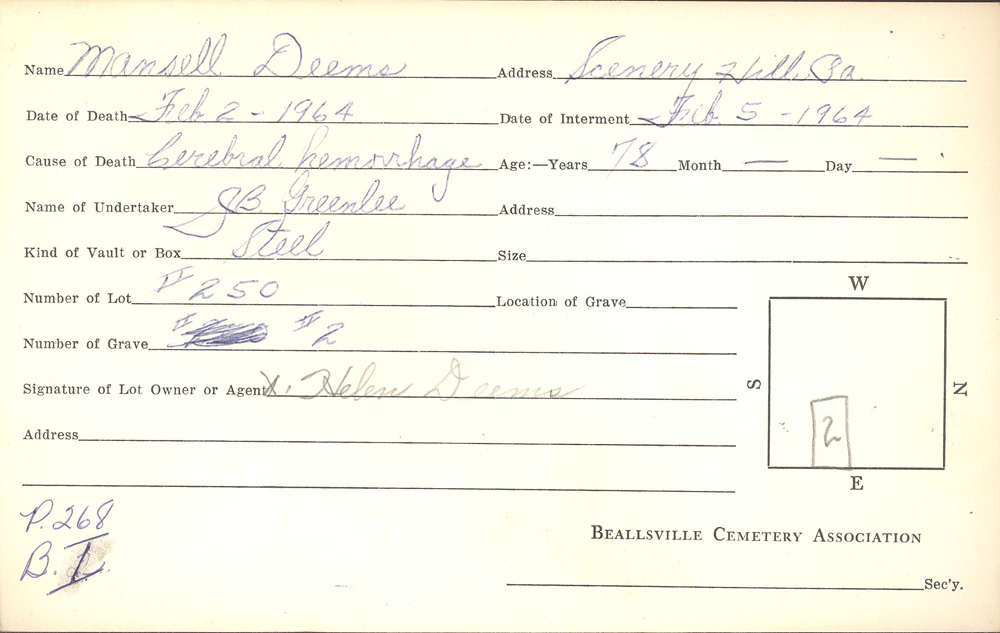 Name Mansell Deems Address Scenery Hill, Pa.
Date of Death Feb 2 - 1964 Date of Interment Feb. 5 - 1964
Cause of Death Cerebral hemorrhage Age:—Years 78 Month — Day —
Name of Undertaker JB. Greenlee Address
Kind of Vault or Box Steel Size
Number of Lot # 250 Location of Grave
Number of Grave # 2
Signature of Lot Owner or Agent X. Helen Deems
Address
W
S
N
2
E
P. 268
B. I.
BEALLSVILLE CEMETERY ASSOCIATION
Sec'y.